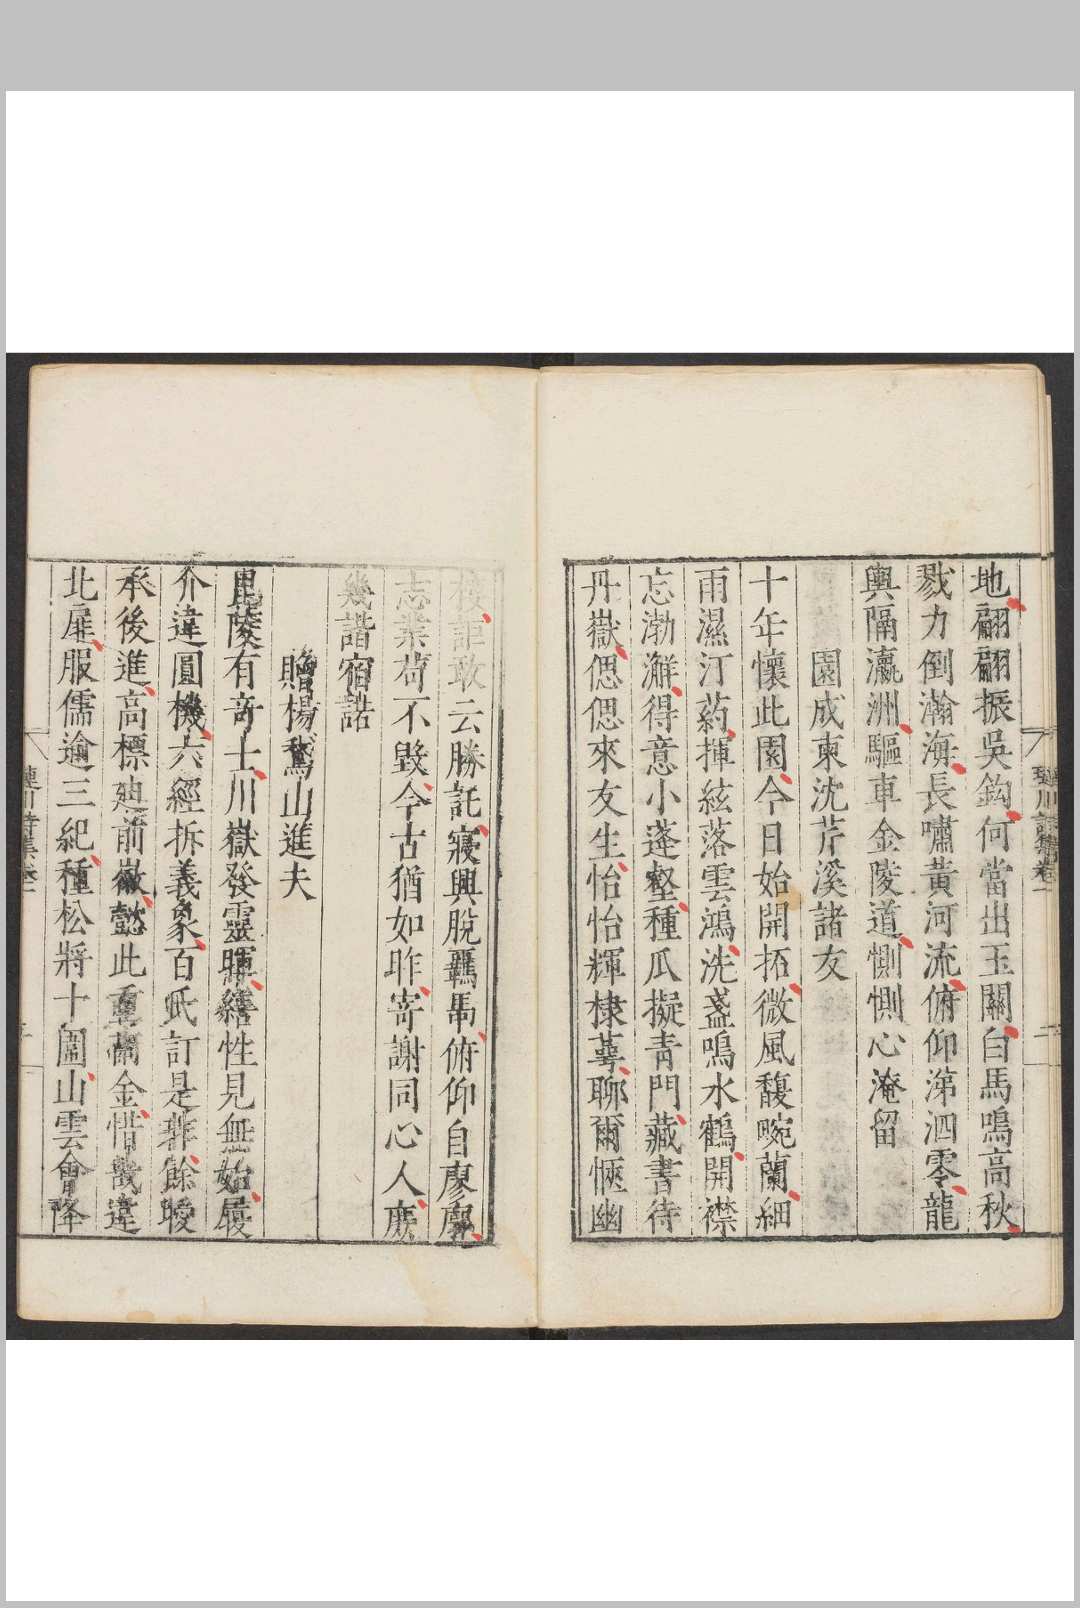 地翩翩振吳鈎何當出玉關白馬鳴高秋
戮力倒瀚海長嘯黃河流俯仰涕泗零龍
輿隔瀛洲驅車金陵道惻惻心淹留
園成柬沈芹溪諸友
十年懷此園今日始開拓微風馥畹蘭細
雨濕汀葯揮絃落雲鴻洗盞鳴水鶴開襟
忘渤澥得意小蓬壑種瓜擬靑門藏書待
丹嶽偲偲來友生怡怡輝棣萼聊爾愜幽
投詎敢云勝託寢興脫羈馽俯仰自廖廓
志業苟不毀今古猶如昨寄謝同心人庶
幾諧宿諾
贈楊騖山進夫
毘陵有竒士川嶽發靈暉繕性見無始履
介違圓機六經拆義象百氏訂是非餘曖
承後進高標廸前徽懿此重萬金惜哉違
北扉服儒逾三紀種松將十圍山雲會降
璉川詩集卷一
二